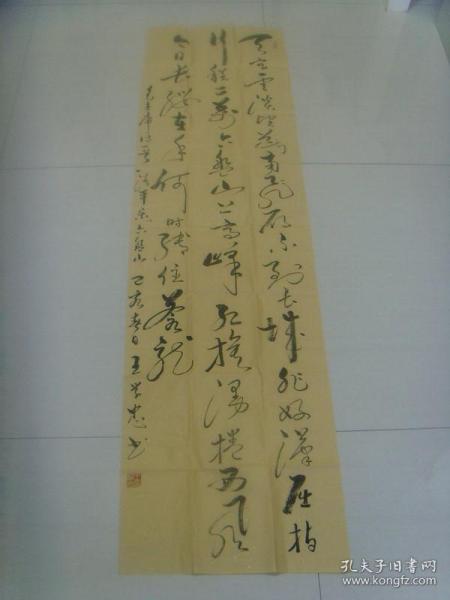 天高雲淡望断南飞雁不到长城非好漢屈指
行程二万六盘山上高峰红旗漫捲西风
今日长缨在手何时缚住苍龙
毛主席 六盘山 春日 王学忠书
孔夫子旧书网
www.kongfz.com